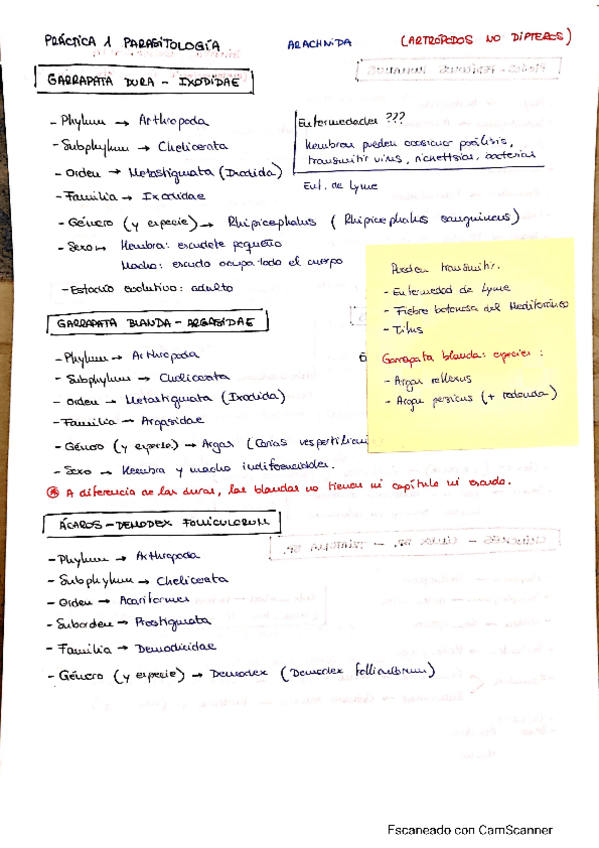 PRÁCTICA 1 PARASITOLOGÍA ARACHNIDA (ARTRÓPODOS NO DÍPTEROS)
GARRAPATA DURA - IXODIDAE
- Phylum → Arthropoda
- Subphylum → Chelicerata
- Orden → Metastigmata (Ixodida)
- Familia → Ixodidae
Enfermedades ???
Hembras pueden ocasionar parálisis,
transmitir virus, rickettsias, bacterias
Enf. de Lyme
- Género (y especie) → Rhipicephalus (Rhipicephalus sanguineus)
- Sexo → Hembra: escudete pequeño
Macho: escudo ocupa todo el cuerpo
- Estadio evolutivo: adulto
Pueden transmitir:
- Enfermedad de Lyme
- Fiebre botonosa del Mediterráneo
- Tifus
Garrapata blanda: especies:
- Argas reflexus
- Argas persicus (+ redonda)
GARRAPATA BLANDA - ARGASIDAE
- Phylum → Arthropoda
- Subphylum → Chelicerata
- Orden → Metastigmata (Ixodida)
- Familia → Argasidae
- Género (y especie) → Argas (Carios vespertilionis
- Sexo → Hembra y macho indiferenciables.
* A diferencia de las duras, las blandas no tienen ni capítulo ni escudo.
ÁCAROS - DEMODEX FOLLICULORUM
- Phylum → Arthropoda
- Subphylum → Chelicerata
- Orden → Acariformes
- Suborden → Prostigmata
- Familia → Demodicidae
- Género (y especie) → Demodex (Demodex folliculorum)
Escaneado con CamScanner